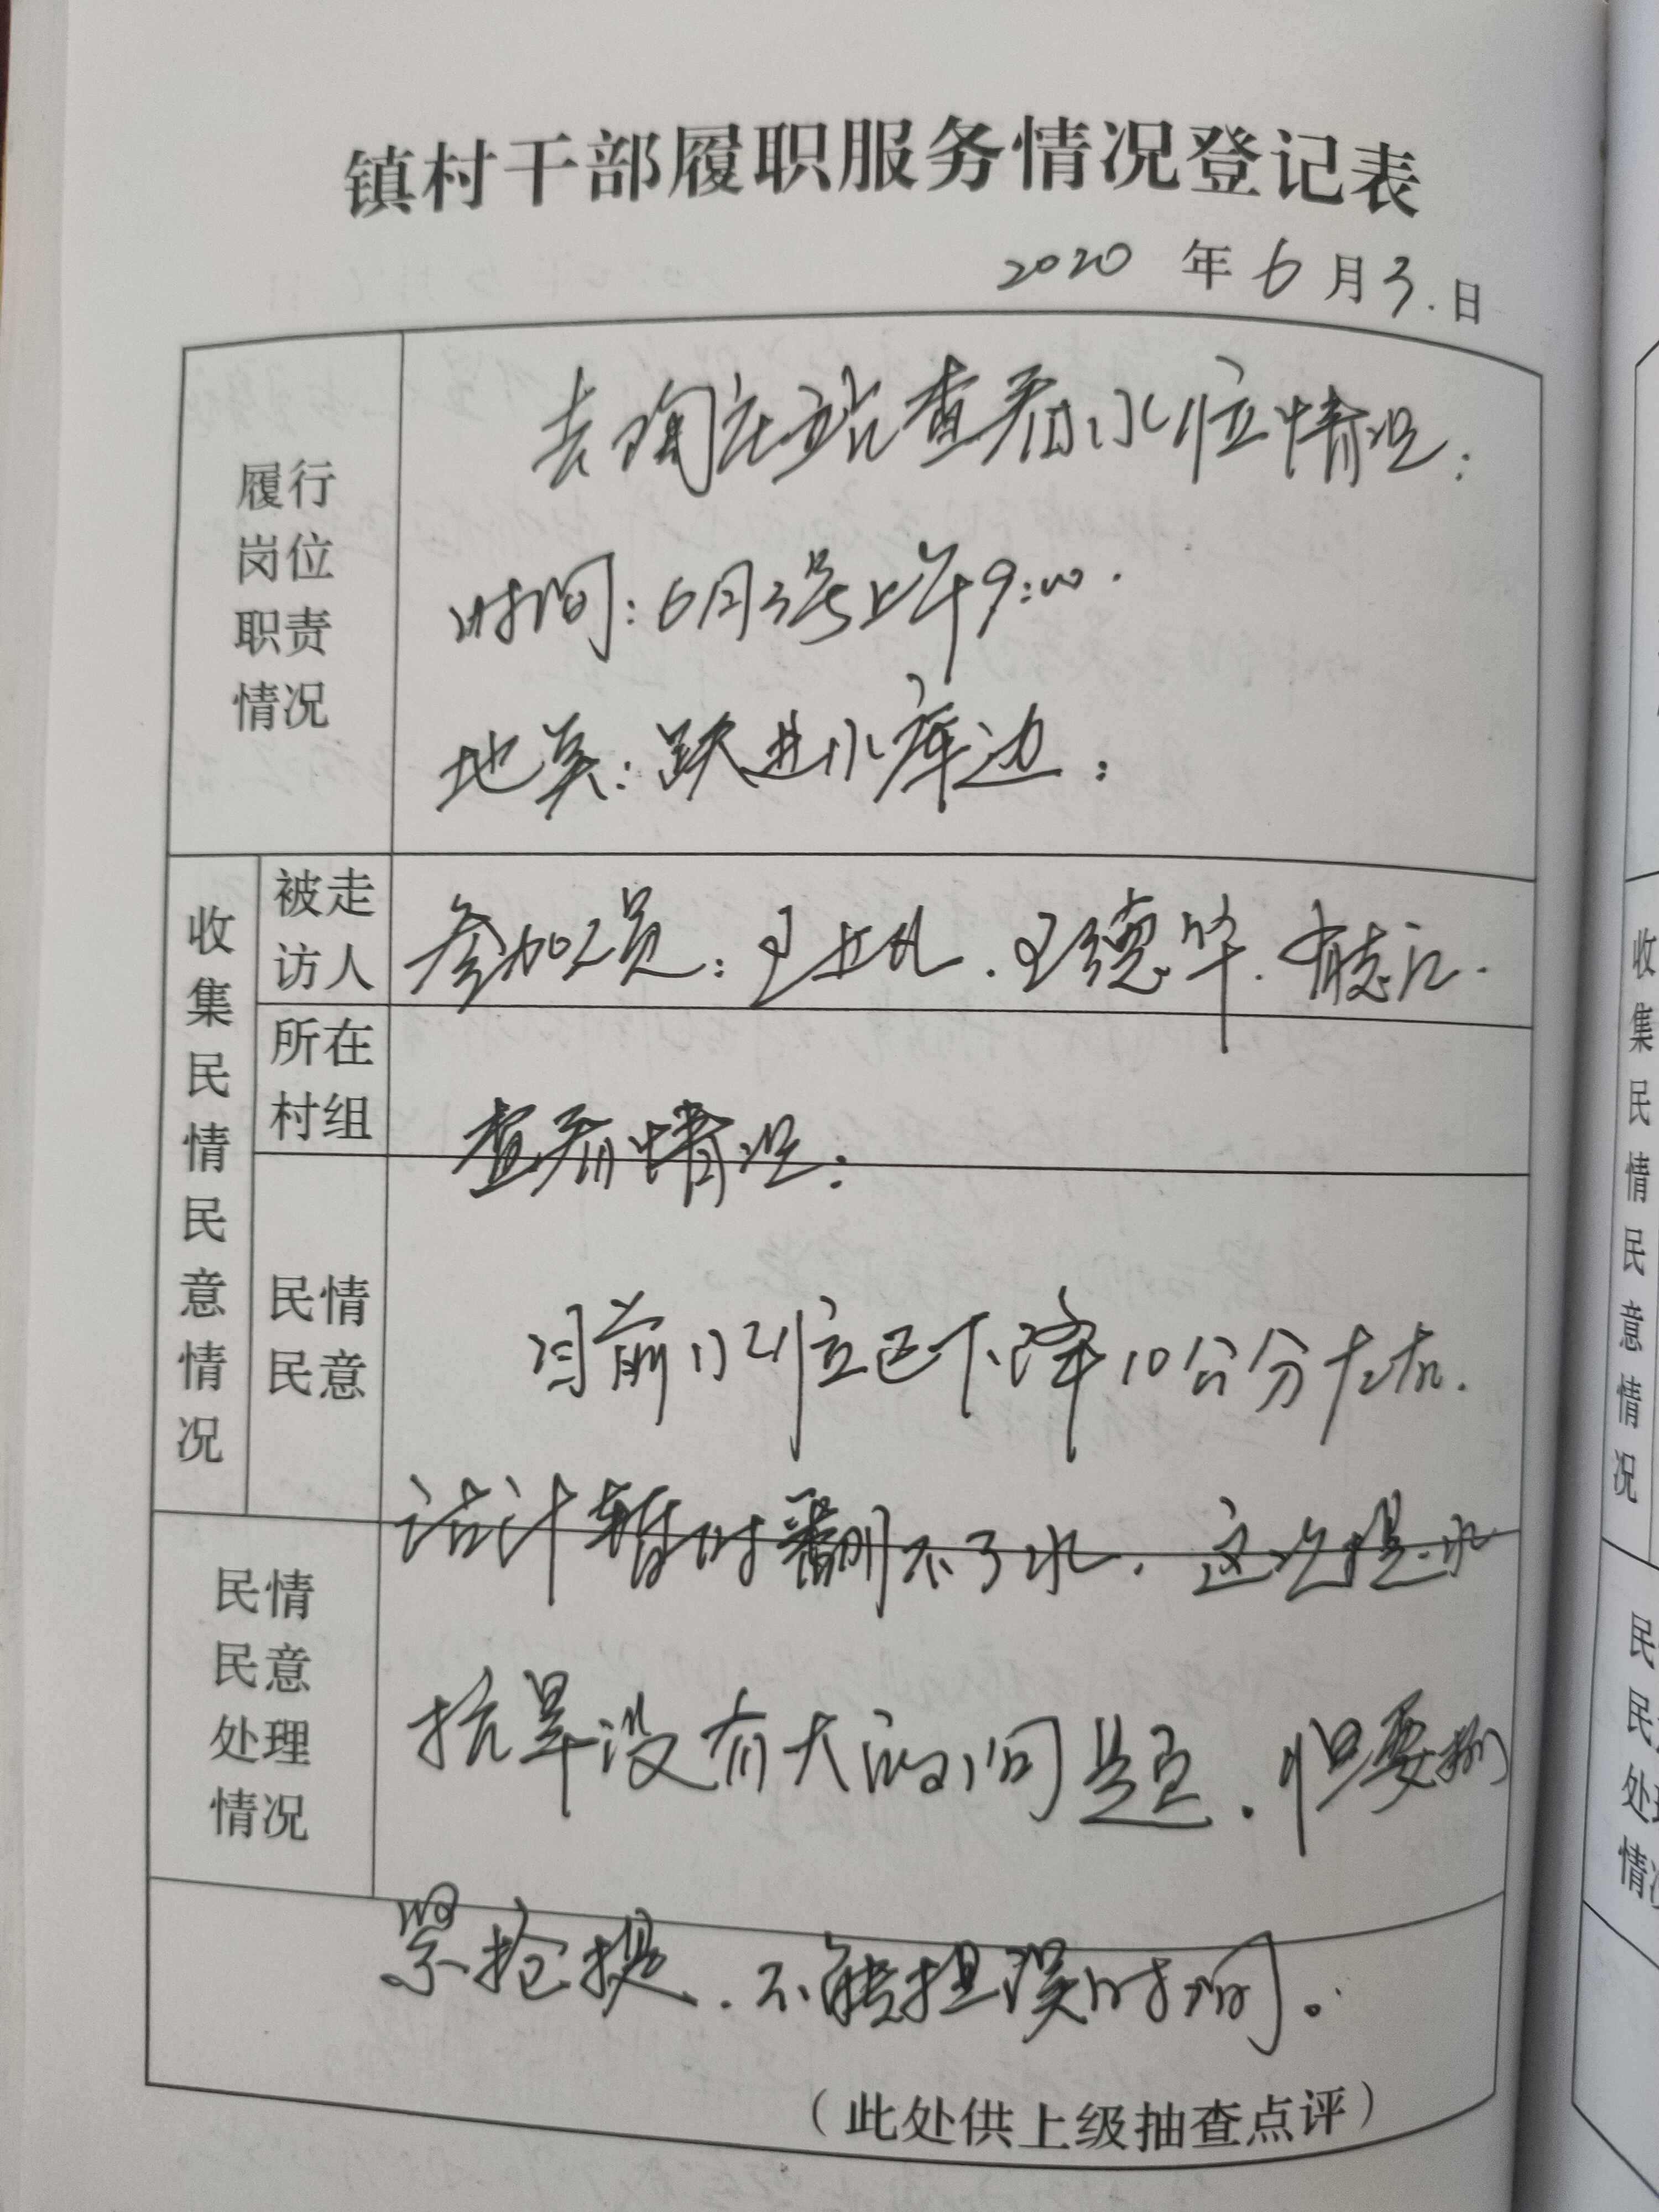 镇村干部履职服务情况登记表
2020 年 6 月 3. 日
履行
岗位
职责
情况
去陶庄站查看水位情况:
时间:6月3号上午9:00.
地点:跃进水库边:
收集民情民意情况
被走
访人
参加人员:王.王德华.志江.
所在
村组
查看情况:
民情
民意
目前水位已下降10公分左右.
估计暂时翻不了水.这次提水
民情
民意
处理
情况
抗旱没有大的问题.但要抓
紧抢提.不能担误时间。
(此处供上级抽查点评)
收集民情民意情况